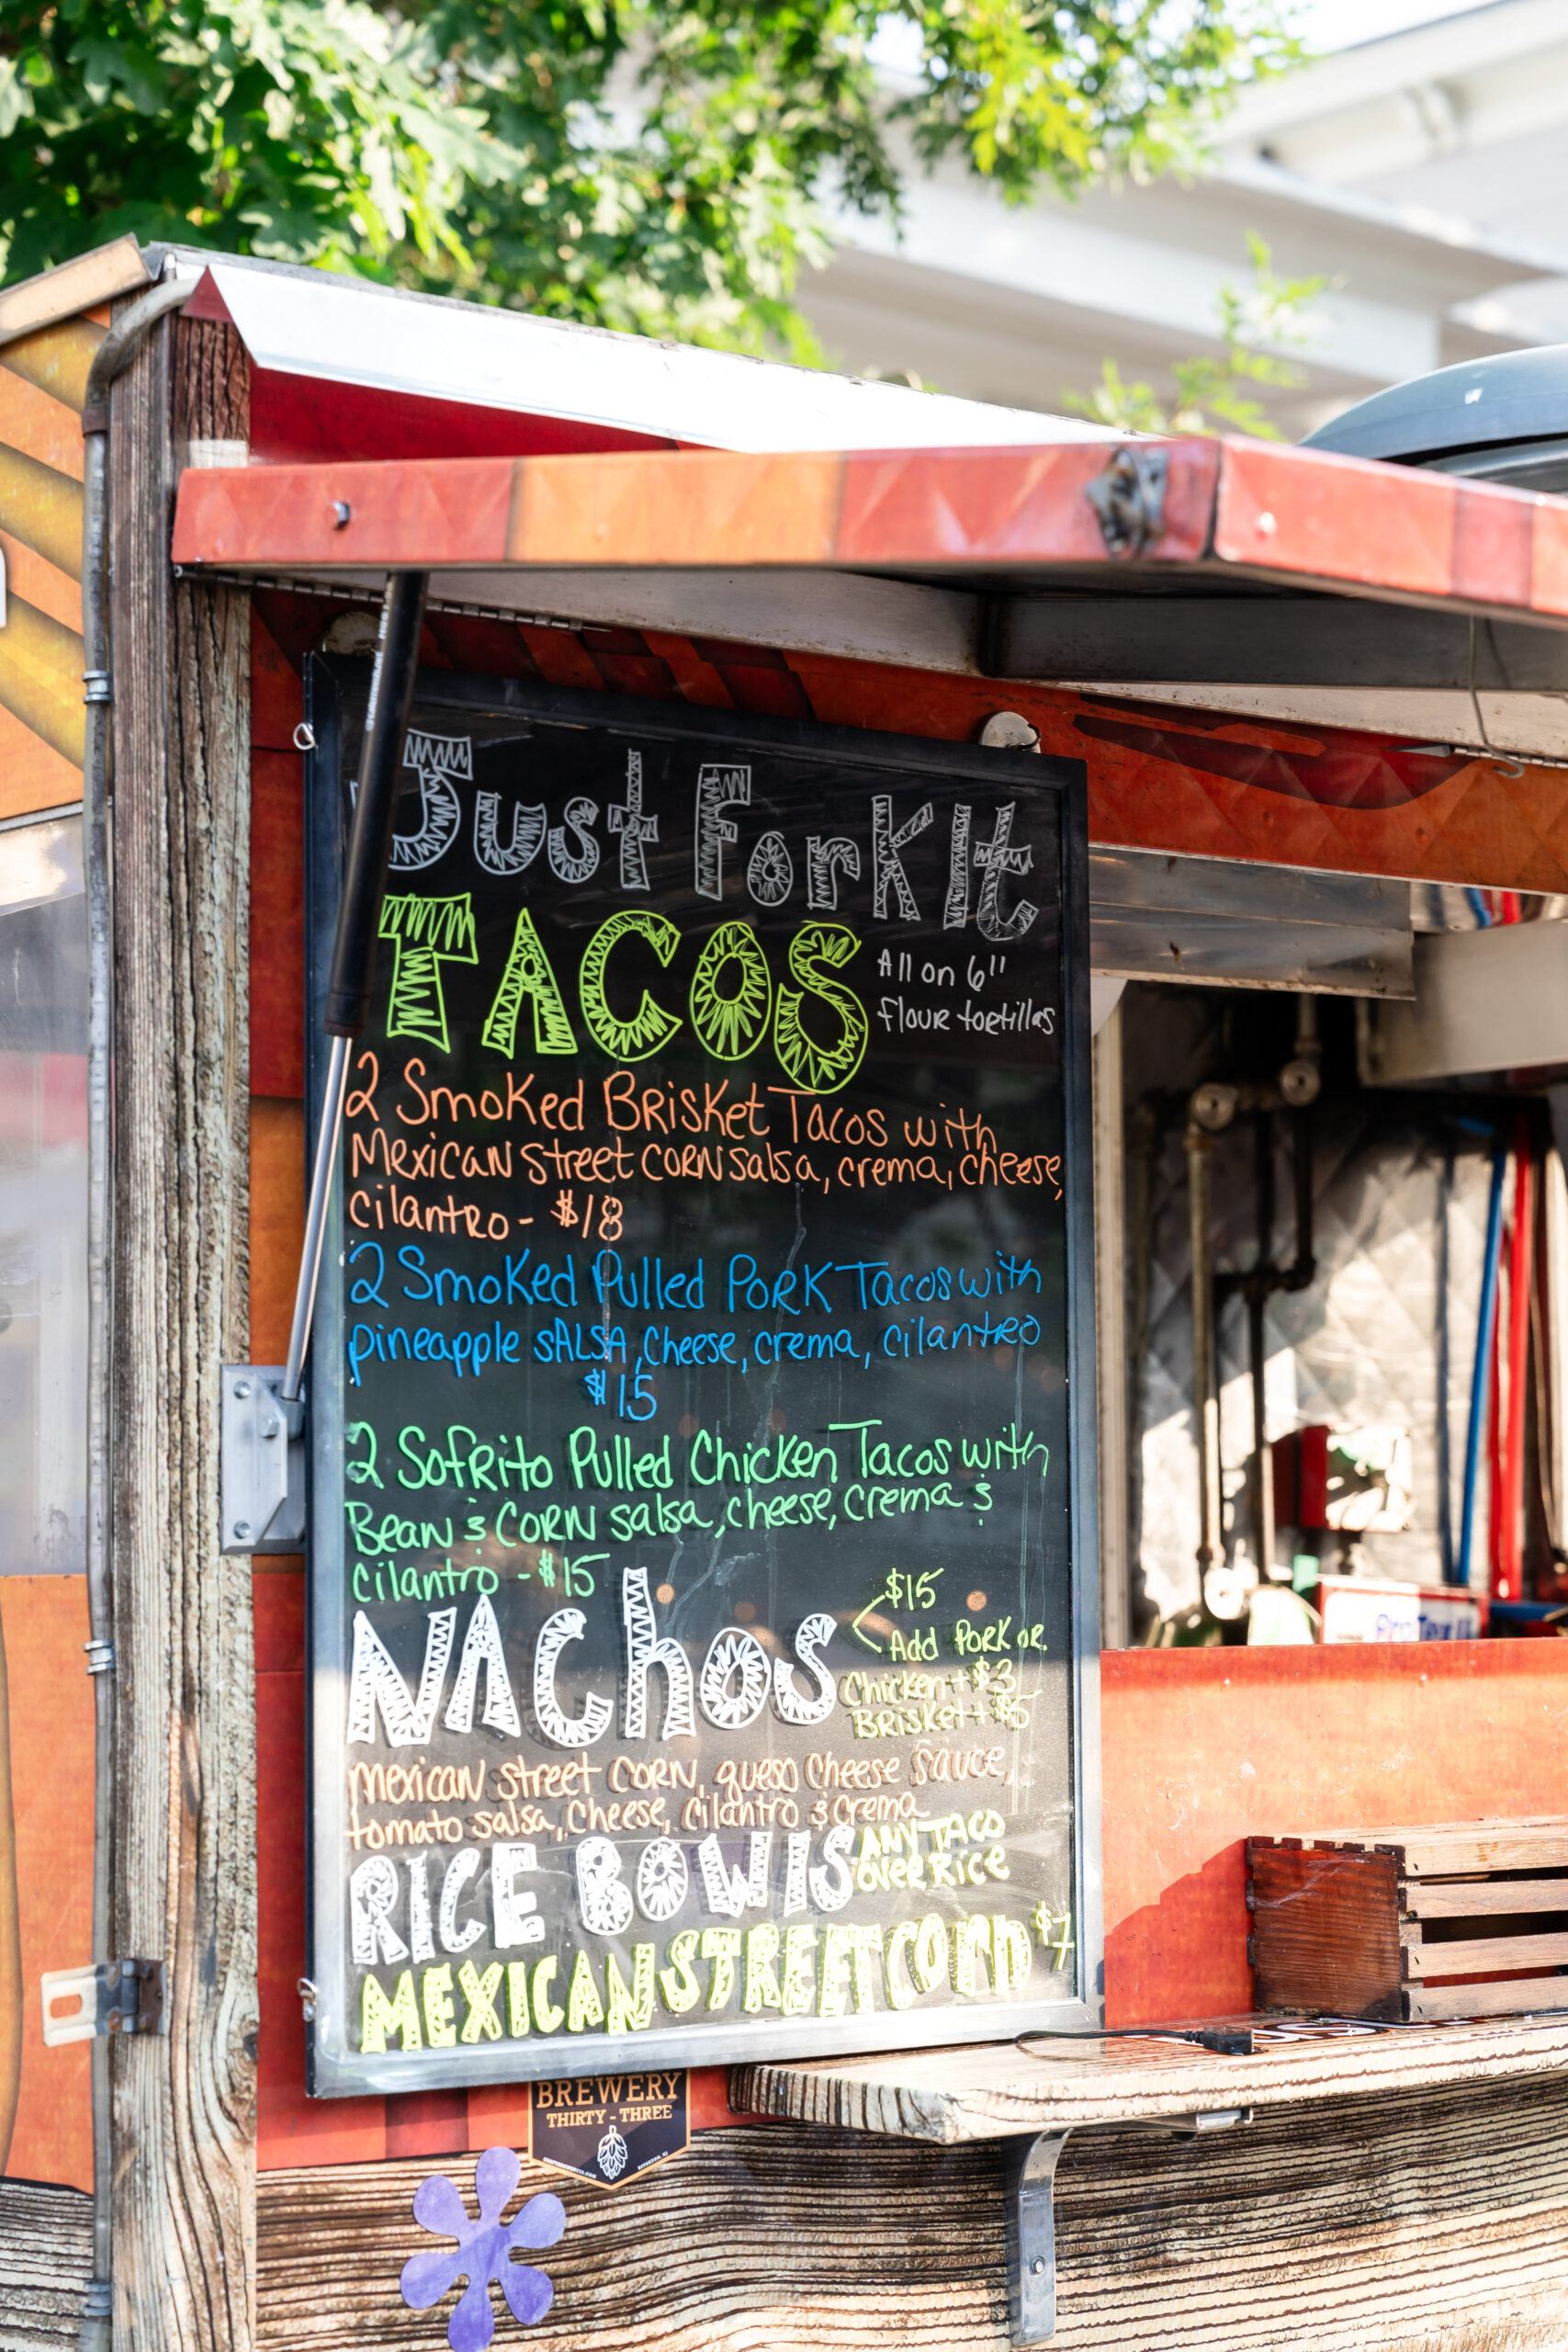 Just Fork It
TACOS
All on 6"
flour tortillas
2 Smoked Brisket Tacos with
Mexican street corn salsa, crema, cheese,
cilantro - $18
2 Smoked Pulled Pork Tacos with
pineapple salsa, cheese, crema, cilantro
$15
2 Sofrito Pulled Chicken Tacos with
Bean & corn salsa, cheese, crema &
cilantro - $15
NACHOS
$15
Add Pork or
Chicken + $3
Brisket + $5
Mexican street corn, queso cheese sauce,
tomato salsa, cheese, cilantro & crema
RICE BOWLS
ANY TACO
over Rice
MEXICAN STREET CORN $7
BREWERY
THIRTY-THREE